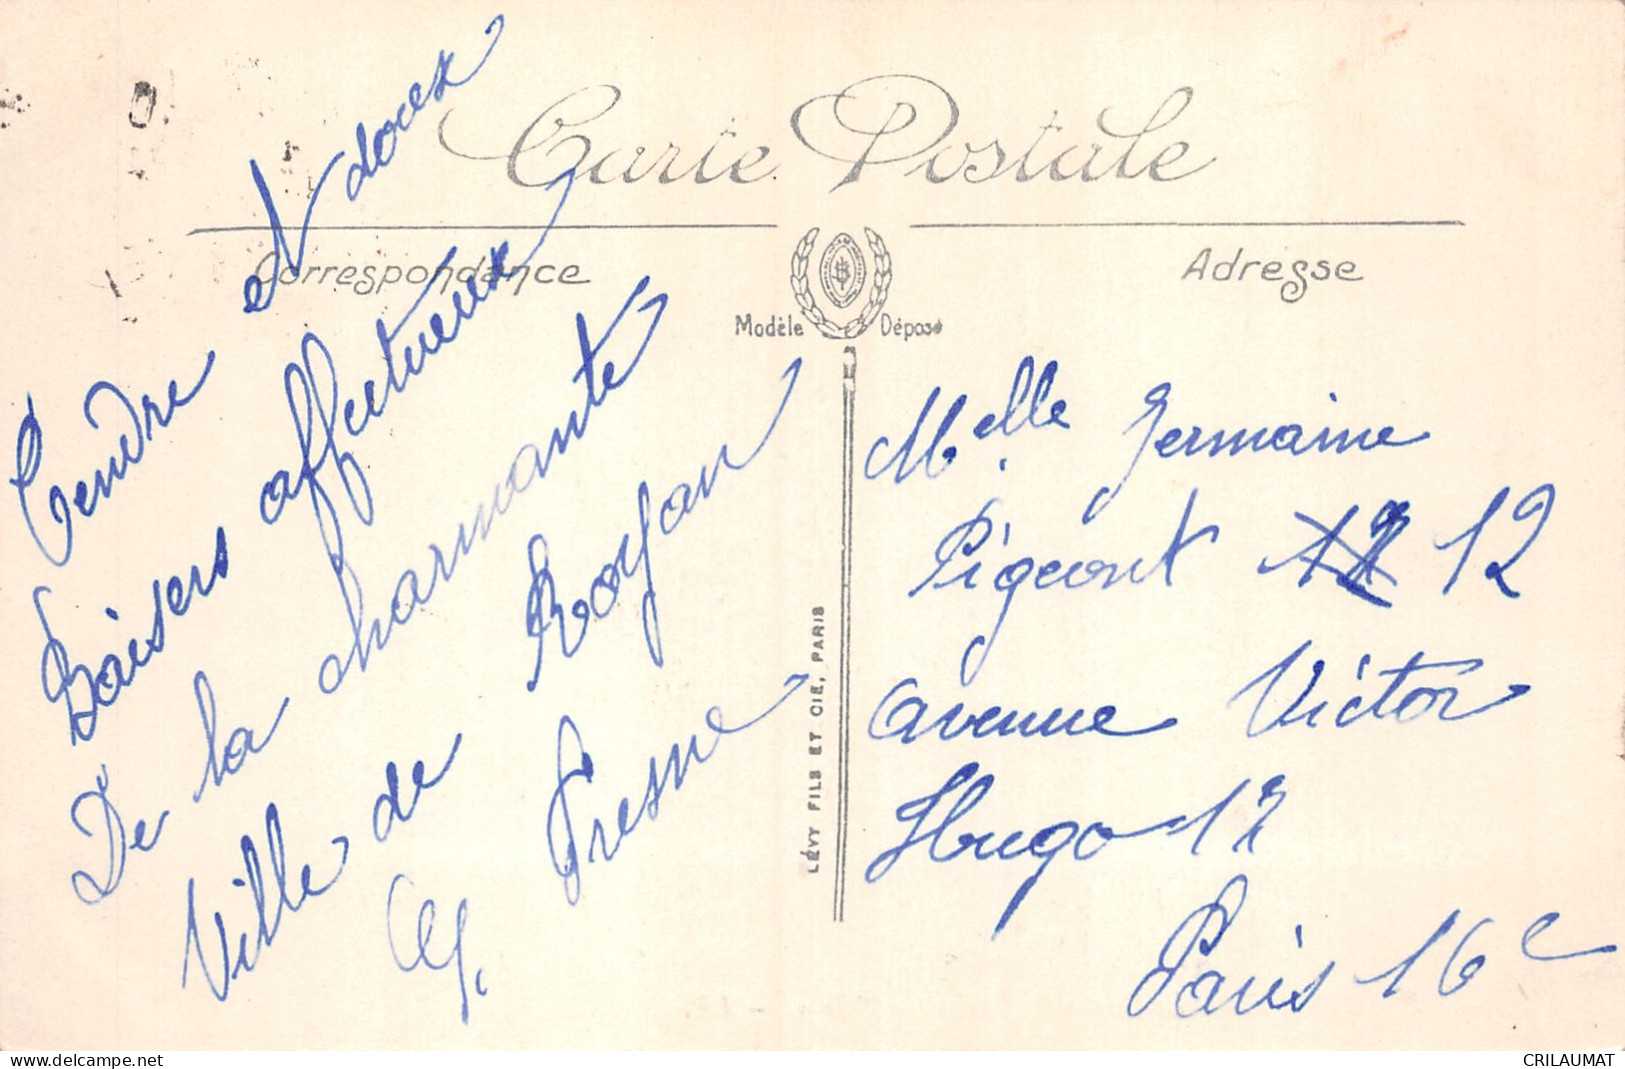 Carte Postale
Correspondance
Adresse
Modèle Déposé
Tendre et doux
Baisers affectueux
De la charmante
Ville de Royan
G. Fresne
LÉVY FILS ET CIE, PARIS
Melle Germaine
Pigeont 12
avenue Victor
Hugo 12
Paris 16e
www.delcampe.net
CRILAUMAT